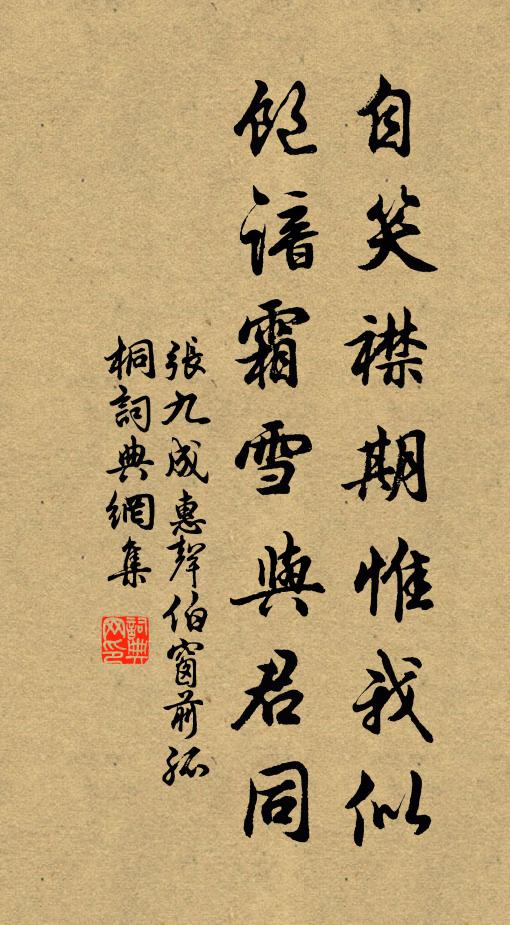 自笑襟期惟我似
飽諳霜雪與君同
張九成惠聲伯窗前孤
桐詞典網集
詞典
网印